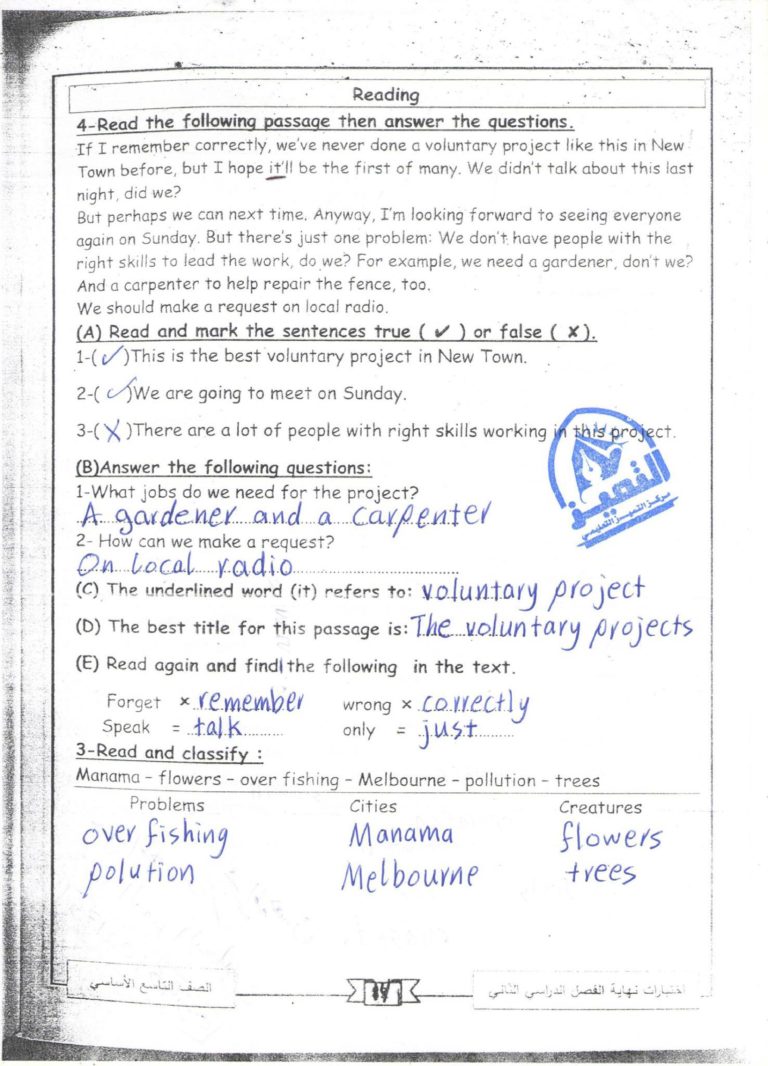 Reading
4-Read the following passage then answer the questions.
If I remember correctly, we've never done a voluntary project like this in New
Town before, but I hope it'll be the first of many. We didn't talk about this last
night, did we?
But perhaps we can next time. Anyway, I'm looking forward to seeing everyone
again on Sunday. But there's just one problem: We don't have people with the
right skills to lead the work, do we? For example, we need a gardener, don't we?
And a carpenter to help repair the fence, too.
We should make a request on local radio.
(A) Read and mark the sentences true ( ✓ ) or false ( ✗ ).
1-(✓)This is the best voluntary project in New Town.
2-(✓)We are going to meet on Sunday.
3-(✗)There are a lot of people with right skills working in this project.
التميز
مركز التميز التعليمي
(B)Answer the following questions:
1-What jobs do we need for the project?
A gardener and a carpenter
2- How can we make a request?
On local radio
(C) The underlined word (it) refers to: voluntary project
(D) The best title for this passage is: The voluntary projects
(E) Read again and find the following in the text.
Forget × remember wrong × correctly
Speak = talk only = just
3-Read and classify :
Manama – flowers – over fishing – Melbourne – pollution – trees
Problems Cities Creatures
over fishing Manama flowers
polution Melbourne trees
الصف التاسع الأساسي اختبارات نهاية الفصل الدراسي الثاني